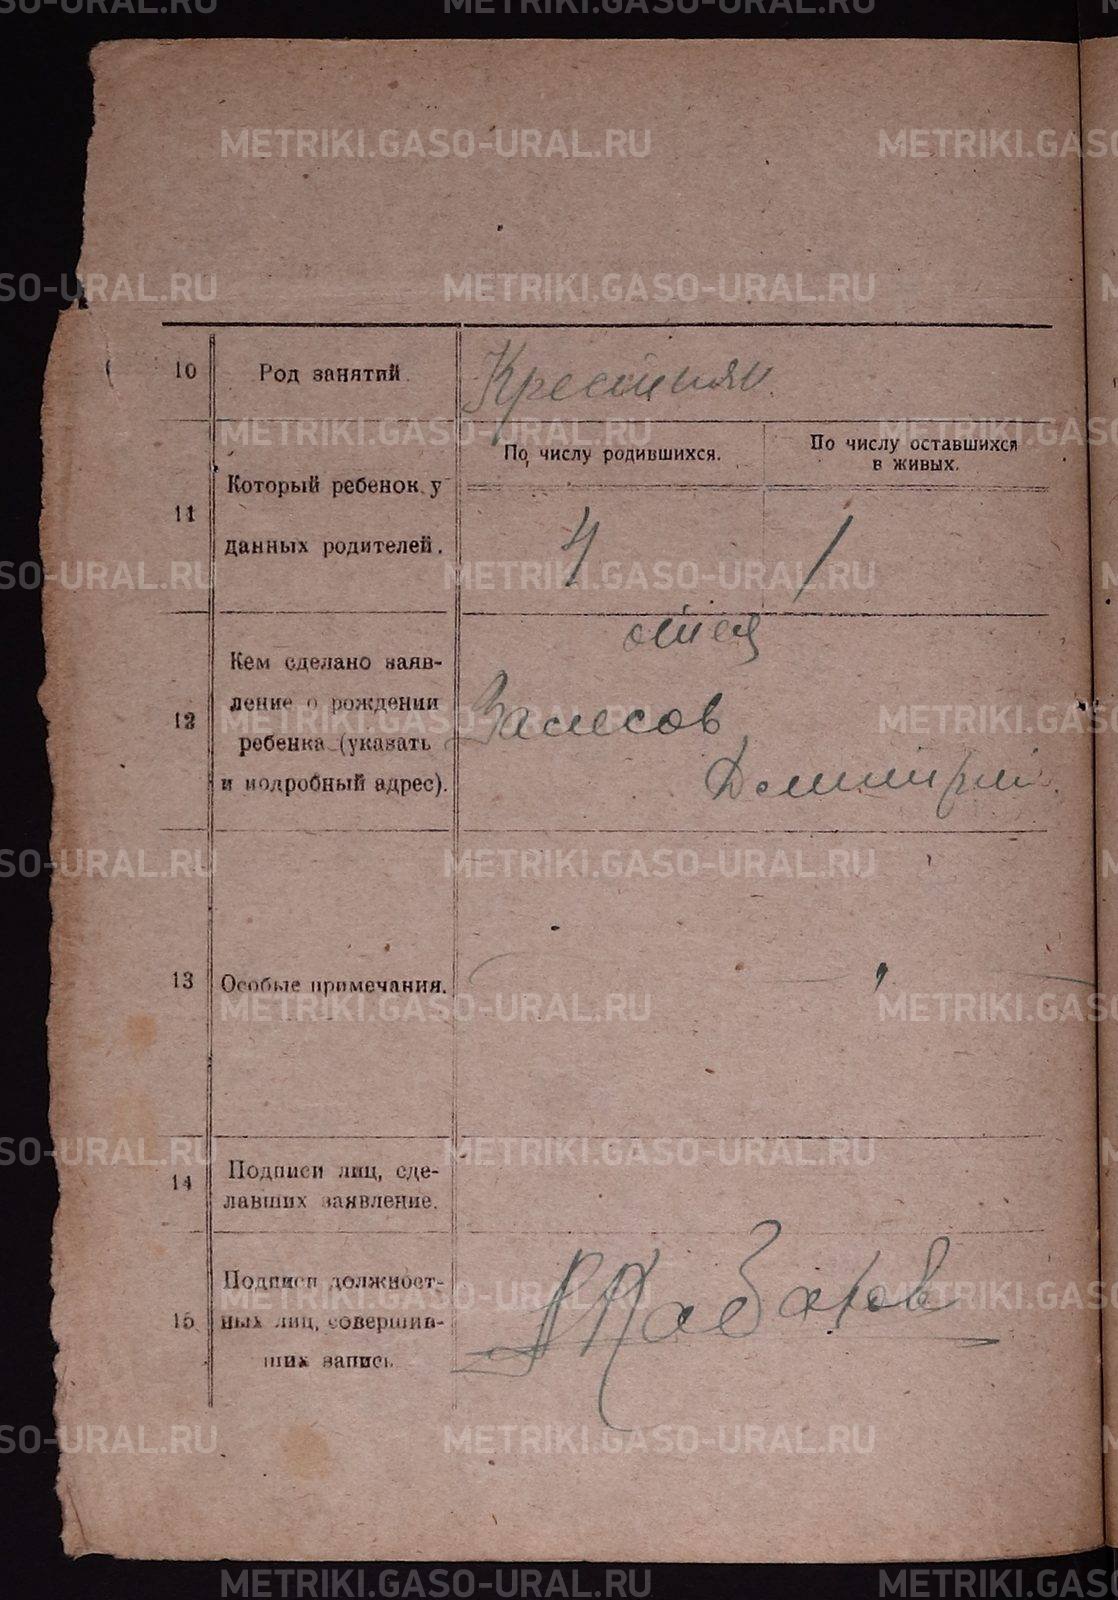 METRIKI.GASO-URAL.RU
10 Род занятий. Крестьян.
11 Который ребенок у
данных родителей.
По числу родившихся.
По числу оставшихся
в живых.
4 1
12 Кем сделано заяв-
ление о рождении
ребенка (указать
и подробный адрес).
отец
Залесов
Дмитрий
13 Особые примечания.
14 Подписи лиц, сде-
лавших заявление.
15 Подписи должност-
ных лиц, совершив-
ших запись